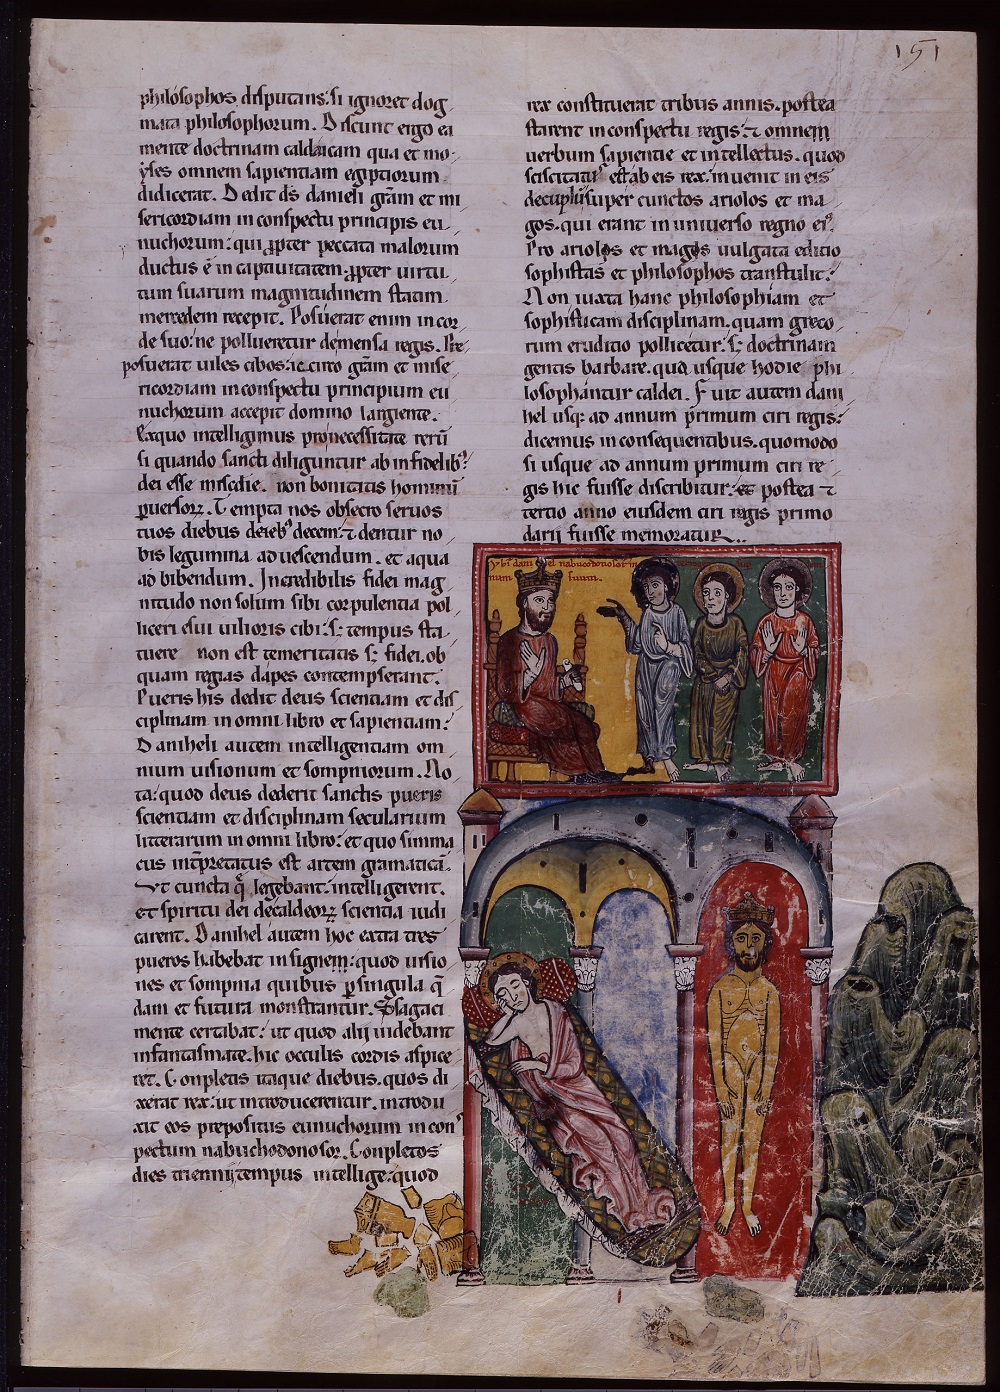 151
philosophos disputans: si ignoret dog
mata philosophorum. Discunt ergo ea
mente doctrinam caldaicam qua et mo
yses omnem sapientiam egiptiorum
didicerat. Dedit ds danieli gram et mi
sericordiam in conspectu principis eu
nuchorum: qui propter peccata maiorum
ductus e in captiuitatem: propter uirtu
tum suarum magnitudinem statim
mercedem recepit. Posuerat enim in cor
de suo: ne pollueretur de mensa regis. Pre
posuerat uiles cibos: icirco gram et mise
ricordiam in conspectu principium eu
nuchorum accepit domino largiente.
Ex quo intelligimus pro necessitate reru
si quando sancti diliguntur ab infidelib;
dei esse miscdie. non bonitatis hominu
peruersorz. Tempta nos obsecro seruos
tuos diebus decem: et dentur no
bis legumina ad uescendum. et aqua
ad bibendum. Incredibilis fidei mag
nitudo non solum sibi corpulentia pol
liceri esui uilioris cibi: s; tempus sta
tuere non est temeritatis s; fidei. ob
quam regias dapes contempserant.
Pueris his dedit deus scientiam et dis
ciplinam in omni libro et sapientiam:
Daniheli autem intelligentiam om
nium uisionum et sompniorum. No
ta: quod deus dederit sanctis pueris
scientiam et disciplinam secularium
litterarum in omni libro: et quo simma
cus interpretatus est artem gramatica.
Ut cuncta que legebant: intelligerent.
et spiritu dei de caldeorz scientia iudi
carent. Danihel autem hoc extra tres
pueros habebat insignem: quod uisio
nes et sompnia quibus per singula que
dam et futura monstrantur. sagaci
mente certabat: ut quod alii uidebant
in fantasmate. hic occulis cordis aspice
ret. Conpletis itaque diebus. quos di
xerat rex: ut introducerentur. introdu
xit eos prepositus eunuchorum in con
pectum nabuchodonosor. Conpletos
dies triennii tempus intellige: quod
rex constituerat tribus annis. postea
starent in conspectu regis: et omnem
uerbum sapientie et intellectus. quod
sciscitatus est ab eis rex: inuenit in eis
decuplum super cunctos ariolos et ma
gos. qui erant in uniuerso regno ei;
Pro ariolos et magos uulgata editio
sophistas et philosophos transtulit:
Non iuxta hanc philosophiam et
sophisticam disciplinam. quam greco
rum eruditio pollicetur: s; doctrinam
gentis barbare. qua usque hodie phi
losophantur caldei. Fuit autem dani
hel usq; ad annum primum ciri regis:
dicemus in consequentibus. quomodo
si usque ad annum primum ciri re
gis hic fuisse discribitur: et postea et
tertio anno eiusdem ciri regis primo
darii fuisse memoratur.
Ybi daniel nabucodonosor in
suum.